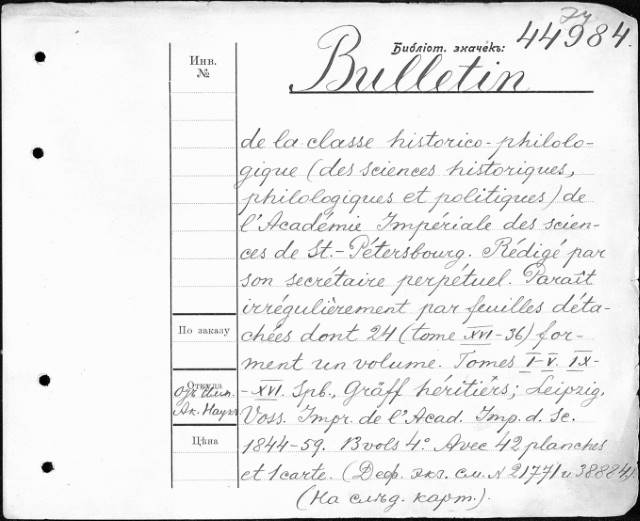 74
44984.
Библіот. значекъ:
Bulletin
Инв.
№
de la classe historico-philolo-
gique (des sciences historiques,
philologiques et politiques) de
l'Académie Impériale des scien-
ces de St.-Pétersbourg. Rédigé par
son secrétaire perpétuel. Paraît
irrégulièrement par feuilles déta-
chées dont 24 (tome XVI-36) for-
ment un volume. Tomes I-V. IX-
-XVI. Spb., Gräff héritiérs; Leipzig,
Voss. Impr. de l'Acad. Imp. d. Sc.
1844-59. 13 vols 4°. Avec 42 planches
et 1 carte. (Деф. экз. см. N 21771 и 38884).
(На слѣд. карт.).
По заказу
Откуда
Отъ Имп.
Ак. Наукъ
Цѣна